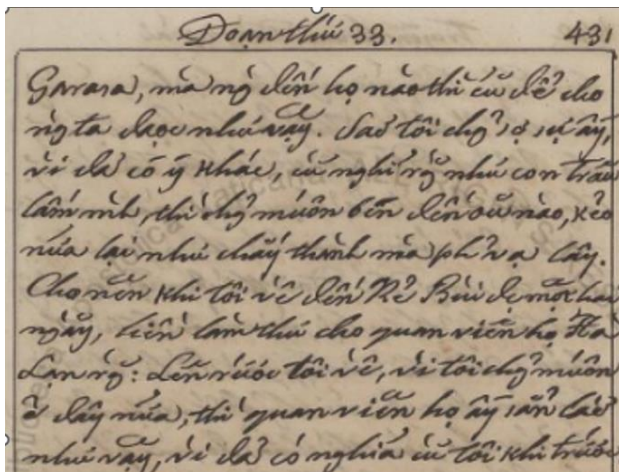 Đoạn thứ 33. 431
Garasa, mà ng̃ đến họ nào thì cũ để cho
ng̃ ta đạoc như vậy. Saơ tôi chg̉ sợ sự ấy,
vì đã có ý khác, cũ nghĩ rg̃ như con trâu
lấm mình, thì chg̉ muốn bén đến ai nào, kẻo
nữa lại như cháy thành mà phải vạ lây.
Cho nên khi tôi về đến Kẻ Bùi độ một hai
ngày, liền làm thư cho quan viên họ Hà
Lạn rg̃: Lên rước tôi về, vì tôi chg̉ muốn
ở đây nữa, thì quan viên họ ấy sẵn lào
như vậy, vì đã có nghĩa cũ tôi khi trước